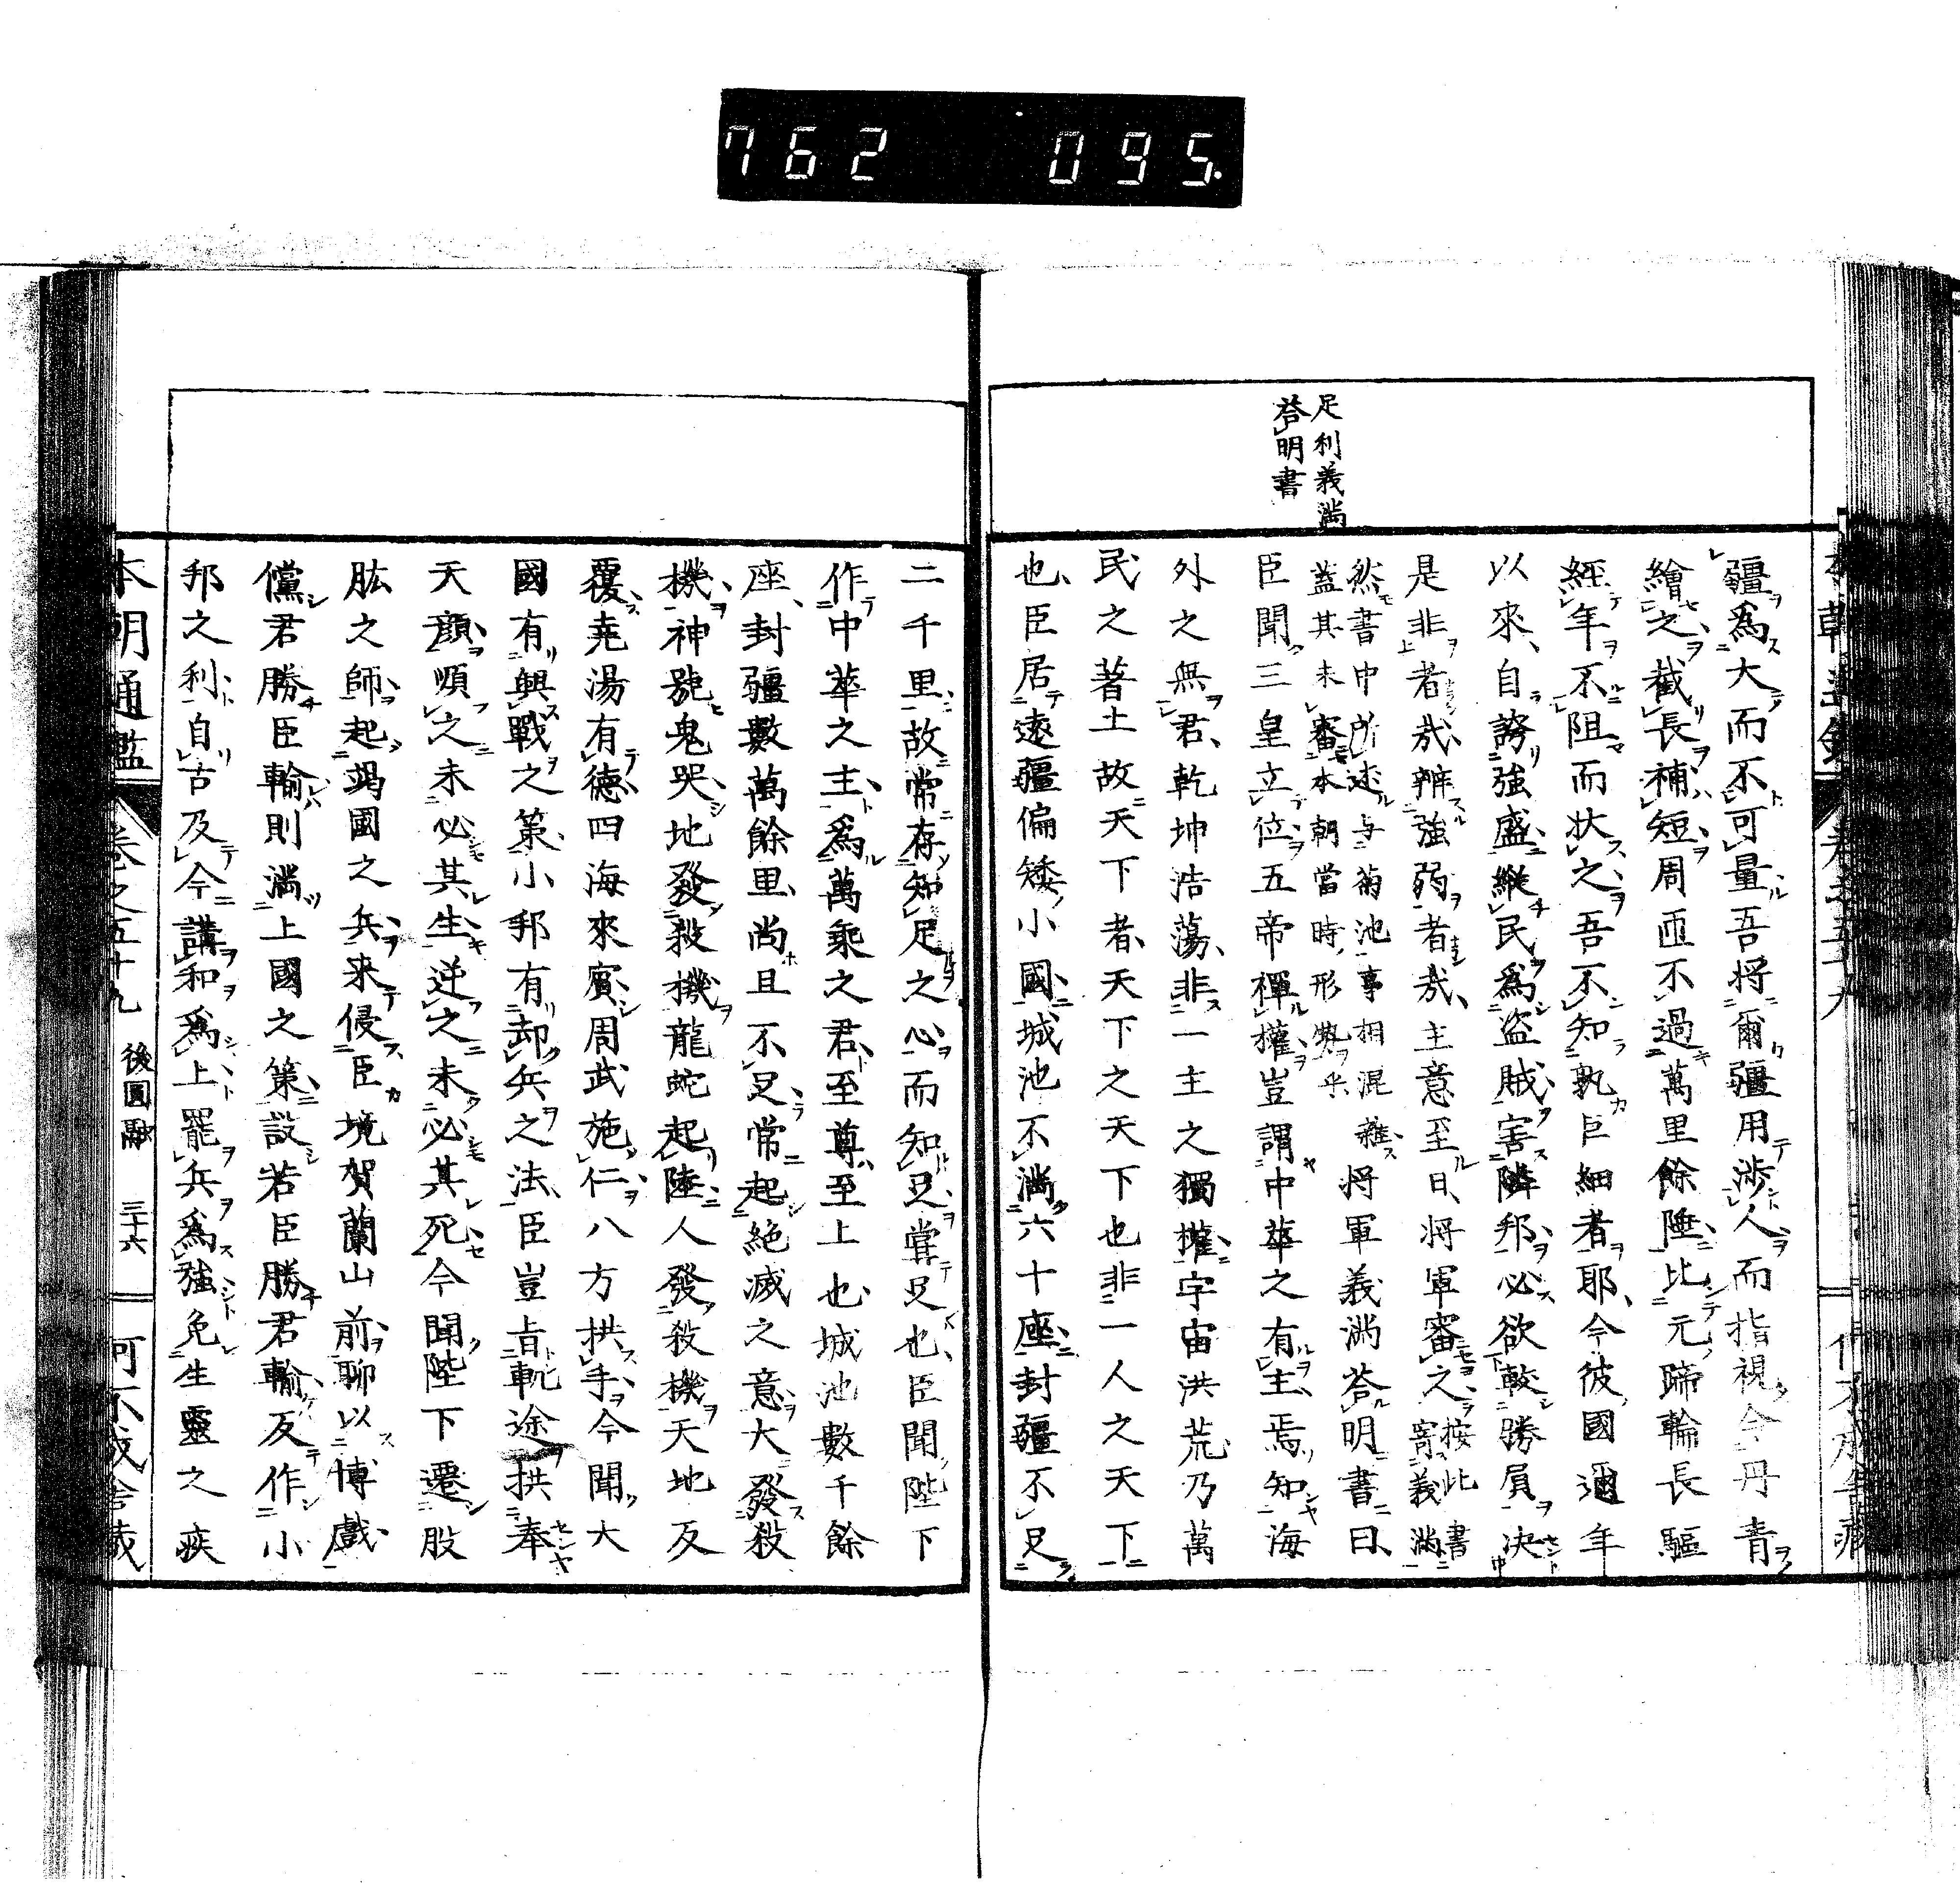 762 095.
足利義満
荅明書
疆爲大而不可量吾將爾疆用渉人而指視今丹青
繪之截長補短周匝不過萬里餘陲比元蹄輪長驅
經年不阻而状之吾不知孰巨細者耶今彼國邇年
以來自誇強盛縱民爲盗賊害隣邦必欲較勝屓决
是非者㢤辨強弱者㢤主意至日將軍審之按此書寄義満
然書中所述与菊池事相混雜
蓋其未審本朝當時形勢乎
將軍義満荅明書曰
臣聞三皇立位五帝禪權豈謂中華之有主焉知海
外之無君乾坤浩蕩非一主之獨權宇宙洪荒乃萬
民之著土故天下者天下之天下也非一人之天下
也臣居遠疆偏矮小國城池不満六十座封疆不足
二千里故常存知足之心而知足嘗足也臣聞陛下
作中華之主爲萬乘之君至尊至上也城池數千餘
座封疆數萬餘里尚且不足常起絶滅之意大發殺
機神號鬼哭地發殺機龍蛇起陸人發殺機天地反
覆堯湯有德四海來賓周武施仁八方拱手今聞大
國有興戰之策小邦有却兵之法臣豈旨軌途拱奉
天顔順之未必其生逆之未必其死今聞陛下遷股
肱之師起竭國之兵来侵臣境賀蘭山前聊以博戲
儻君勝臣輸則満上國之策設若臣勝君輸反作小
邦之利自古及今講和爲上罷兵爲強免生靈之疾
本朝通鑑 卷之五十九 後圓融 三十六